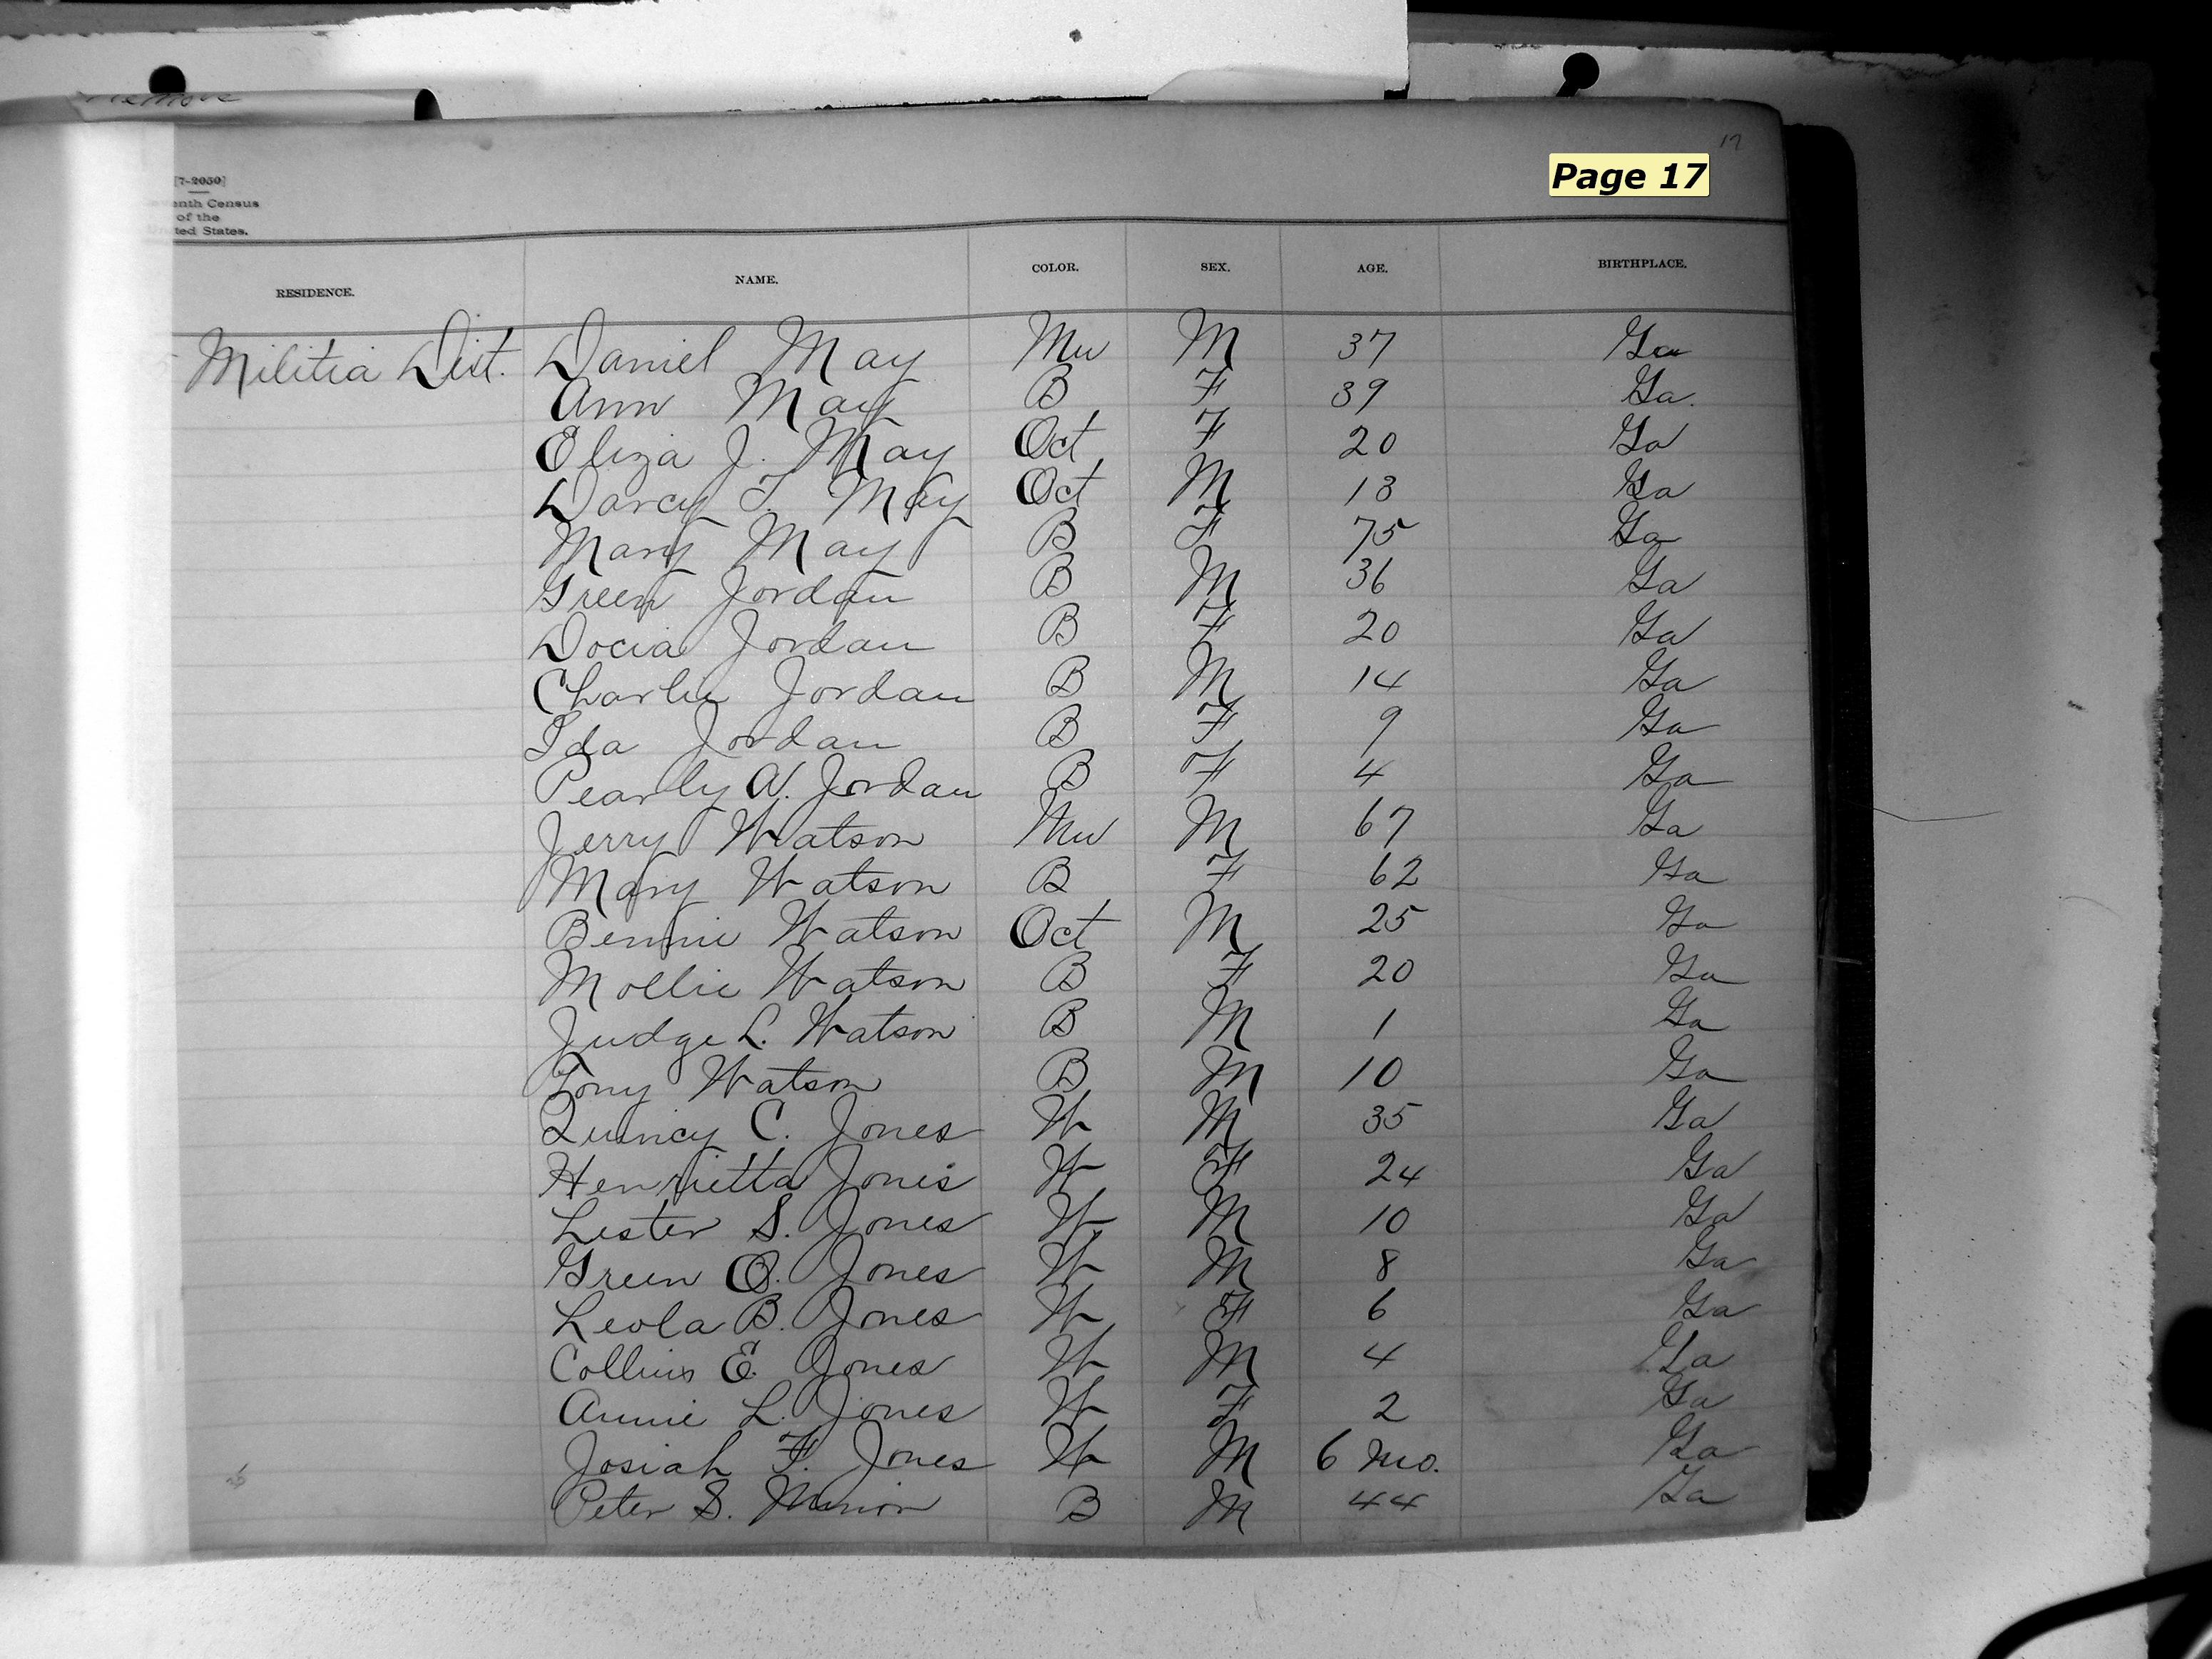 remove
17
Page 17
[7-2050]
enth Census
of the
United States.
RESIDENCE. NAME. COLOR. SEX. AGE. BIRTHPLACE.
Militia Dist. Daniel May Mu M 37 Ga
Ann May B F 39 Ga.
Eliza J. May Oct F 20 Ga
Darcy T. May Oct M 13 Ga
Mary May B F 75 Ga
Green Jordan B M 36 Ga
Docia Jordan B F 20 Ga
Charlie Jordan B M 14 Ga
Ida Jordan B F 9 Ga
Pearly A. Jordan B F 4 Ga
Jerry Watson Mu M 67 Ga
Mary Watson B F 62 Ga
Bennie Watson Oct M 25 Ga
Mollie Watson B F 20 Ga
Judge L. Watson B M 1 Ga
Tony Watson B M 10 Ga
Quincy C. Jones W M 35 Ga
Henrietta Jones W F 24 Ga
Lester S. Jones W M 10 Ga
Green O. Jones W M 8 Ga
Leola B. Jones W F 6 Ga
Collins E. Jones W M 4 Ga
Annie L. Jones W F 2 Ga
Josiah F. Jones W M 6 mo. Ga
Peter S. B M 44 Ga